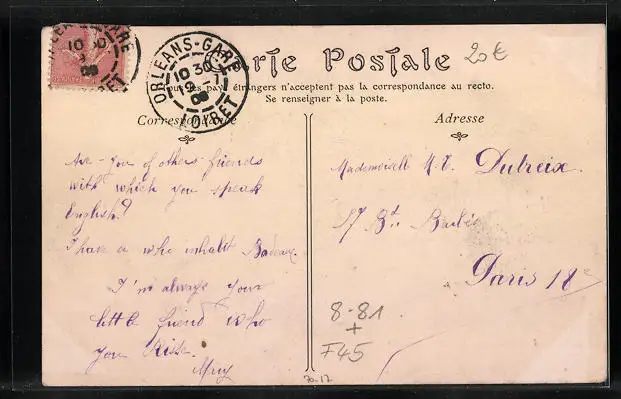 Carte Postale
20€
ORLEANS-GARE
10 30
LOIRET
Tous les pays étrangers n'acceptent pas la correspondance au recto.
Se renseigner à la poste.
Correspondance
Adresse
Are-you of others friends
with which you speak
English?
I have a who inhabit
I'm always your
little friend who
you Kisse.
Mademoiselle M. T. Dutreix.
17 Bd. Barbès
Paris 18e
8-81
+
F45